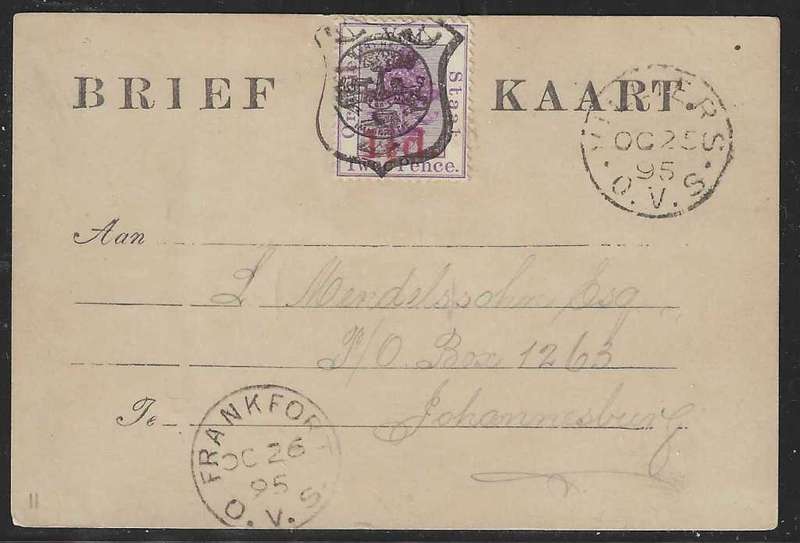 BRIEF KAART.
Staat
1½d
Twee Pence.
OC 25
95
O.V.S.
Aan
L Mendelssohn Esq
P/O. Box 1263
Te Johannesburg
FRANKFORT
OC 26
95
O.V.S.